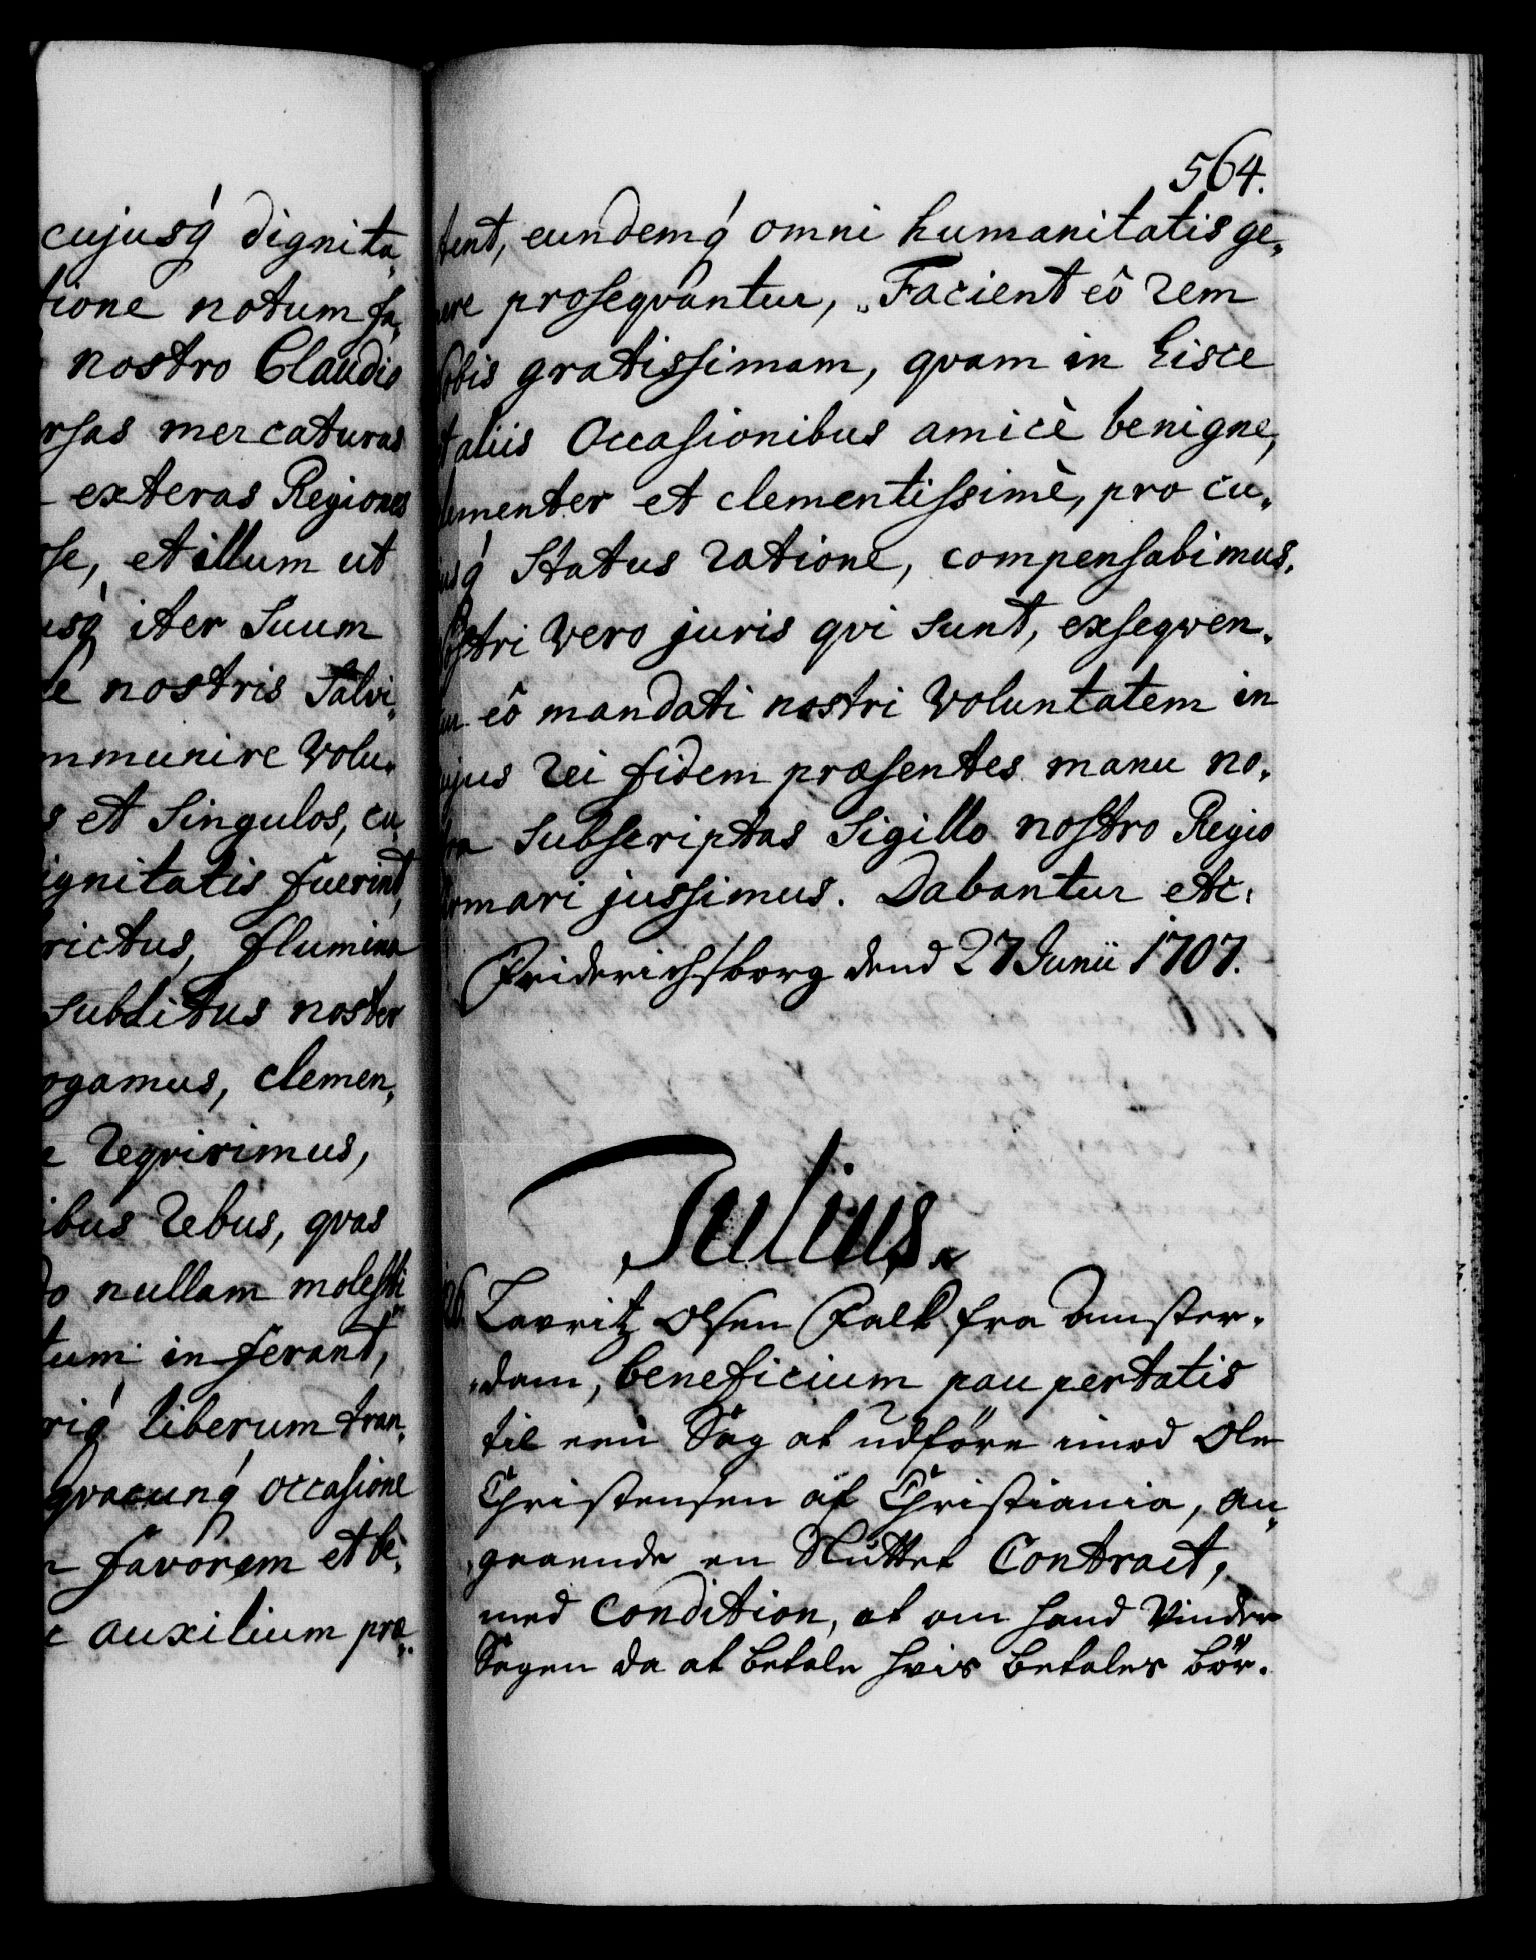 cujusq́ dignita„
tione notum fa„
nostro Claudio
rsas mercaturas
exteras Regiones
se, et illum ut
usq́ iter Suum
nostris Salvi„
mmunire Volu„
s et Singulos, cu„
ignitatis fuerint,
rictus, flumina
subditus noster
ogamus, clemen„
e reqvirimus,
ibus rebus, qvas
do nullam molesti„
tum in ferant,
riq́ liberum tran„
qvacunq́ occasione
n favorem et be„
c auxilium præ„
564.
tent, eundemq́ omni humanitatis ge„
ere proseqvantur, Facient eô rem
obis gratissimam, qvam in hisce
taliis Occasionibus amicè benigne,
lementer et clementissimè, pro cu„
usq́ Status ratione, compensabimus.
ostri Vero juris qvi sunt, exseqven„
eô mandati nostri Voluntatem in
ujus rei fidem præsentes manu no„
tra Subscriptas Sigillo nostro Regio
irmari jussimus. Dabantur etc:
Friderichsborg dend 27 Junii 1707.
Julius.
Lavritz Olsen Falk fra Amster„
„dam, beneficium paupertatis
til een Sag at udføre imod Ole
Christensen af Christiania, an„
„gaaende en Sluttet Contract,
med Condition, at om hand Vinder
Sagen da at betale hvis betales bör.